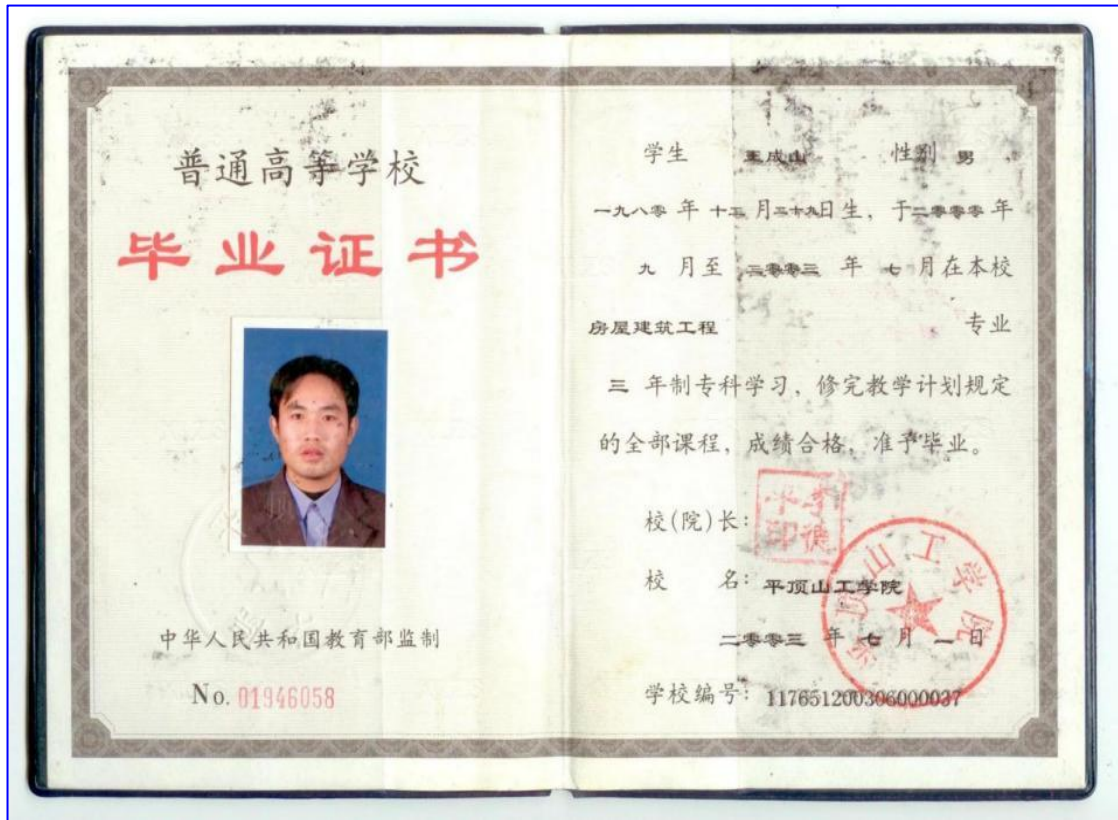 普通高等学校
毕业证书
中华人民共和国教育部监制
No. 01946058
学生 王成山 性别 男 ,
一九八零 年 十二 月二十九日生, 于二零零零 年
九 月至 二零零三 年 七 月在本校
房屋建筑工程 专业
三 年制专科学习, 修完教学计划规定
的全部课程, 成绩合格, 准予毕业。
校(院)长:
校 名: 平顶山工学院
二零零三 年 七 月 一 日
学校编号: 117651200306000037
平顶山工学院